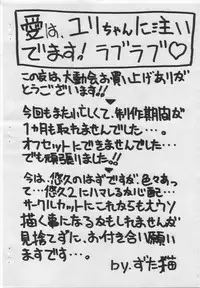 愛は、ユリちゃんに注い
でます!ラブラブ♡
この度は、大動会お買い上げありが
とうございます!!
今回もまた忙しくて、制作期間が
1ヵ月も取れませんでした…。
オフセットにできませんでした…
でも頑張りました!!
今は、悠久のはずですが、色々あっ
て…悠久2にハマレるか心配…
サークルカットにこれからも大ウソ
描く事になるかもしれませんが
見捨てずに、お付き合い願い
ますです…。
by.ずた猫